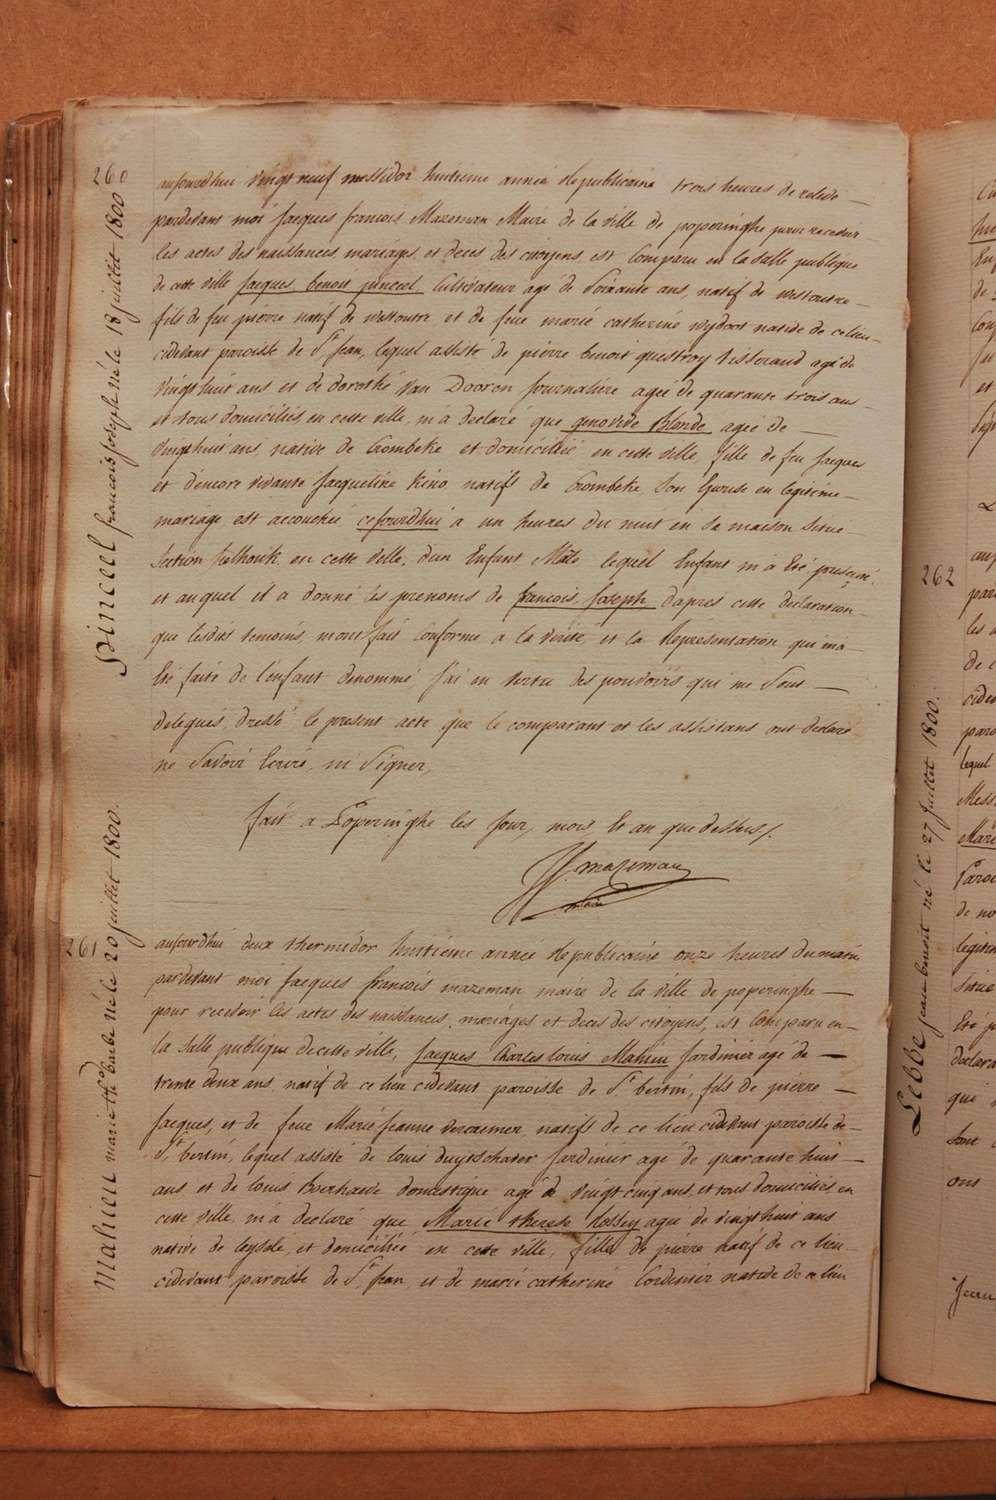 260
pinceel francois joseph né le 18 juillet 1800
aujourdhui vingt neuf messidor huitieme année Republicaine trois heures de relevé
pardevant moi Jacques francois Mazeman Maire de la ville de poperinghe pour recevoir
les actes des naissances, mariages, et deces des citoyens, est Comparu en la salle publique
de cette ville Jacques benoit pinceel Cultivateur agé de soixante ans, natif de westoutre
fils de feu pierre natif de westoutre, et de feue marie catherine wydoot native de ce lieu
cidevant paroisse de St Jean, lequel assisté de pierre benoit questroy tisserand agé de
vingt huit ans et de dorothé Van Dooren Journalière agée de quarante trois ans
et tous domiciliés en cette ville, m'a declaré que genovève Blonde agée de
vingthuit ans, native de Crombeke et domiciliée en cette ville, fille de feu Jacques
et d'encore vivante Jacqueline kino natifs de Crombeke, son Epouse en legitime
mariage est accouchée cejourdhui a un heures du nuit en sa maison Situé
Section en cette ville, d'un Enfant Mâle lequel Enfant m'a eté presenté,
et auquel il a donné les prenoms de francois Joseph d'apres cette declaration
que lesdits temoins, m'ont fait Conforme a la verité, et la Representation qui m'a
eté faite de l'enfant denommé, J'ai en vertu des pouvoirs qui me sont
delegués, dressé le present acte que le comparant et les assistans ont declaré
ne savoir Ecrire ni signer,
fait a Poperinghe les Jour, mois, Et an que dessus,
mazeman
maire
261
Mahieu marie the barbe né le 20 juillet 1800.
aujourdhui deux thermidor huitieme année Republicaine onze heures du matin
pardevant moi Jacques francois mazeman maire de la ville de poperinghe
pour recevoir les actes des naissances, mariages et deces des citoyens, est Comparu en
la salle publique de cette ville, Jacques Charles louis Mahieu Jardinier agé de
trente deux ans, natif de ce lieu cidevant paroisse de St bertin, fils de pierre
Jacques, et de feue Marie Jeanne vercaemer, natifs de ce lieu cidevant paroisse de
St bertin, lequel assisté de louis duytschaver Jardinier agé de quarante huit
ans et de louis Everhaede domestique agé de vingt cinq ans, et tous domiciliés en
cette ville, m'a declaré que Marie therese Hossey agée de vingthuit ans
native de loysele, et domiciliée en cette ville, fille de pierre natif de ce lieu
cidevant paroisse de St Jean, et de marie catherine Cordenier native de ce lieu
262
Lebbe jean benoit né le 27 Juillet 1800.